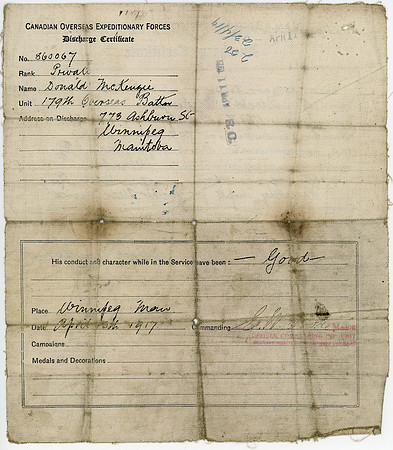 CANADIAN OVERSEAS EXPEDITIONARY FORCES
Discharge Certificate
No. 860067
Rank Private
Name Donald McKenzie
Unit 179th Overseas Battn
Address on Discharge 773 Ashburn St
Winnipeg
Manitoba
His conduct and character while in the Service have been : — Good
Place Winnipeg Man
Date April 1917 Commanding
Campaigns
Medals and Decorations